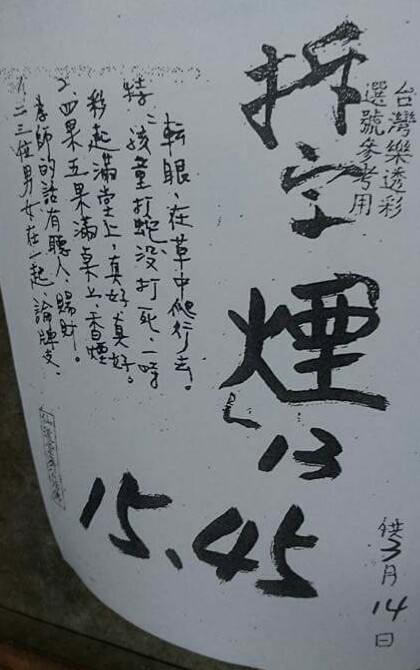 台灣樂透彩
選號參考用
拆字
煙
13
15、45
供3月14日
1、二三位男女在一起、論牌支、
李師的話有聽入、賜財。
2、四果五果滿桌上、香煙
彩起滿堂上、真好真好。
特:孩童打蛇沒打死、一時
轉眼、在草中爬行去。